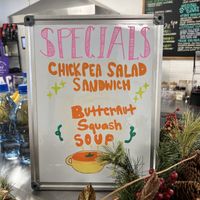 SPECIALS
CHICKPEA SALAD
SANDWICH
Butternut
Squash
SOUP